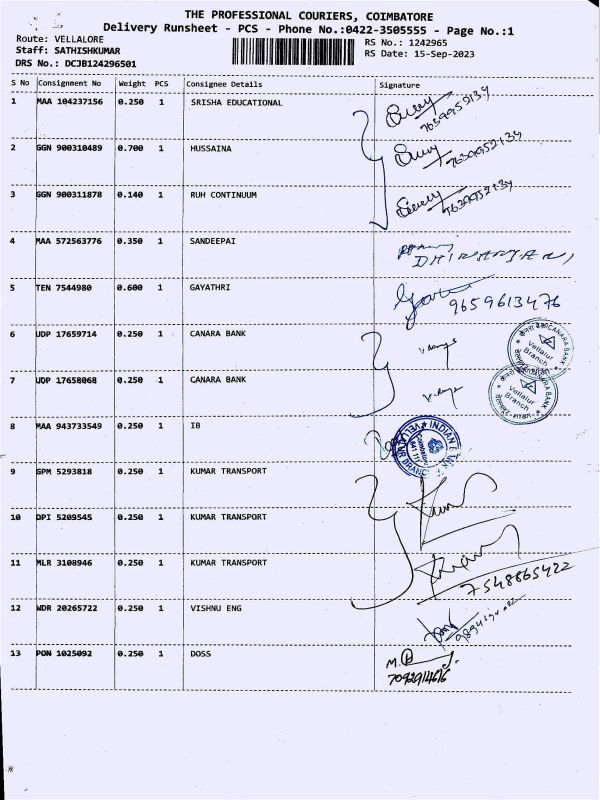 THE PROFESSIONAL COURIERS, COIMBATORE
Delivery Runsheet - PCS - Phone No.:0422-3505555 - Page No.:1
Route: VELLALORE
RS No.: 1242965
Staff: SATHISHKUMAR
RS Date: 15-Sep-2023
DRS No.: DCJB124296501
S No Consignment No Weight PCS Consignee Details Signature
1 MAA 104237156 0.250 1 SRISHA EDUCATIONAL
7639952134
2 GGN 900310489 0.700 1 HUSSAINA
7639952134
3 GGN 900311878 0.140 1 RUH CONTINUUM
7639952134
4 MAA 572563776 0.350 1 SANDEEPAI
5 TEN 7544980 0.600 1 GAYATHRI
9659613476
6 UDP 17659714 0.250 1 CANARA BANK
CANARA BANK
Vellalur
Branch
7 UDP 17658068 0.250 1 CANARA BANK
CANARA BANK
Vellalur
Branch
8 MAA 943733549 0.250 1 IB
INDIAN BANK
VELLALUR BRANCH
9 GPM 5293818 0.250 1 KUMAR TRANSPORT
10 DPI 5209545 0.250 1 KUMAR TRANSPORT
11 MLR 3108946 0.250 1 KUMAR TRANSPORT
7548865422
12 WDR 20265722 0.250 1 VISHNU ENG
13 PON 1025092 0.250 1 DOSS
7092914616